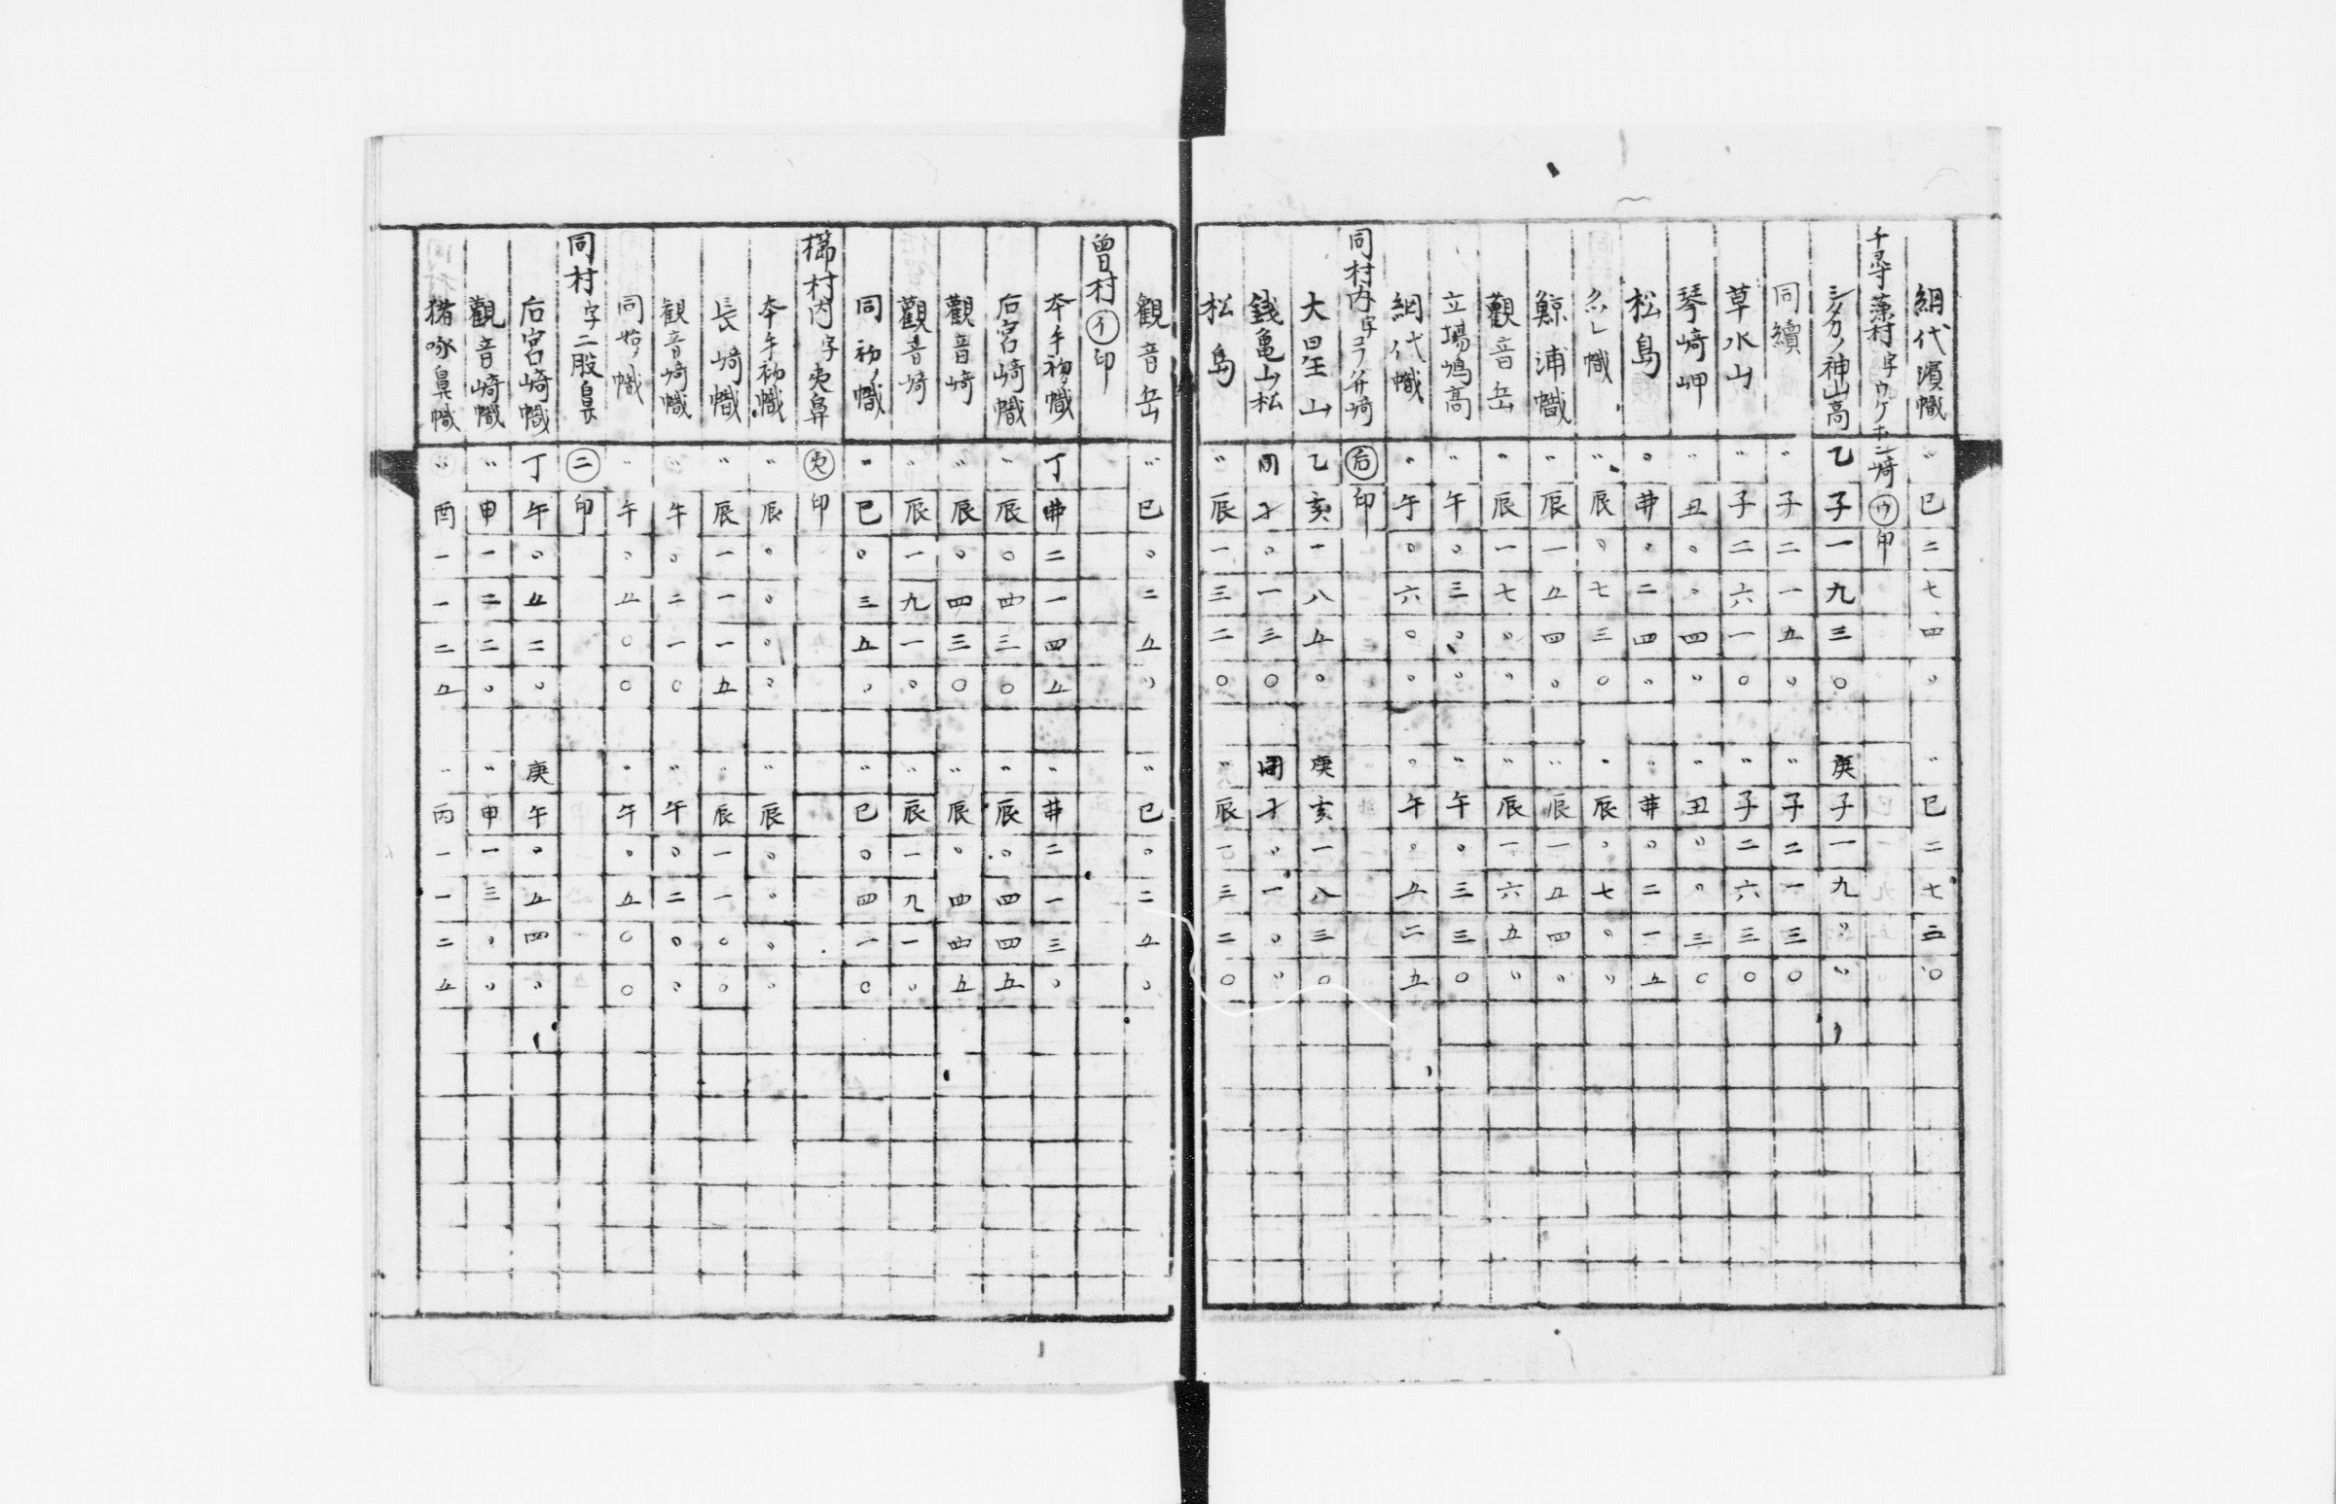 網代濱幟 〃 巳 二 七 四 〃 〃 巳 二 七 五 〇
千尋藻村 字ウゲナ二崎 ㋒印
神山高 乙 子 一 九 三 〇 庚 子 一 九 〃 〃
同續 〃 子 二 一 五 〃 〃 子 二 一 三 〇
草水山 〃 子 二 六 一 〇 〃 子 二 六 三 〇
琴崎岬 〃 丑 〃 〃 四 〃 〃 丑 〃 〃 三 〇
松島 〃 丑 〃 二 四 〃 〃 丑 〃 二 一 五
レ幟 〃 辰 〃 七 三 〇 〃 辰 〃 七 〃 〃
鯨浦幟 〃 辰 一 五 四 〃 〃 辰 一 五 四 〃
觀音岳 〃 辰 一 七 〃 〃 〃 辰 一 六 五 〃
立場嶋高 〃 午 〃 三 〃 〃 〃 午 〃 三 三 〇
網代幟 〃 午 〇 六 〇 〃 〃 午 〃 五 二 五
同村内 字崎 ㊒印
大星山 乙 亥 一 八 五 〃 庚 亥 一 八 三 〇
銭亀山松 同 才 〃 一 三 〇 同 才 〃 一 〃 〃
松島 〃 辰 一 三 二 〇 〃 辰 一 三 二 〇
觀音岳 〃 巳 〃 二 五 〃 〃 巳 〃 二 五 〃
曽村 ㋑印
本手初ノ幟 丁 丑 二 一 四 五 〃 丑 二 一 三 〃
后宮崎幟 〃 辰 〇 四 三 〇 〃 辰 〃 四 四 五
觀音崎 〃 辰 〇 四 三 〇 〃 辰 〃 四 四 五
觀音崎 〃 辰 一 九 一 〃 〃 辰 一 九 一 〃
同初ノ幟 〃 巳 〇 三 五 〃 〃 巳 〇 四 一 〇
櫛村内 字夷鼻 夷印
本手初幟 〃 辰 〃 〃 〃 〃 〃 辰 〃 〃 〃 〃
長崎幟 〃 辰 一 一 一 五 〃 辰 一 一 〇 〇
觀音崎幟 〃 午 〇 二 一 〇 〃 午 〇 二 〇 〃
同始ノ幟 〃 午 〃 五 〇 〇 〃 午 〃 五 〇 〇
同村 字二股鼻 ㊁印
后宮崎幟 丁 午 〇 五 二 〃 庚 午 〃 五 四 〃
觀音崎幟 〃 申 一 二 二 〃 〃 申 一 三 〃 〃
猪啄鼻幟 〃 酉 一 一 二 五 〃 丙 一 一 二 五